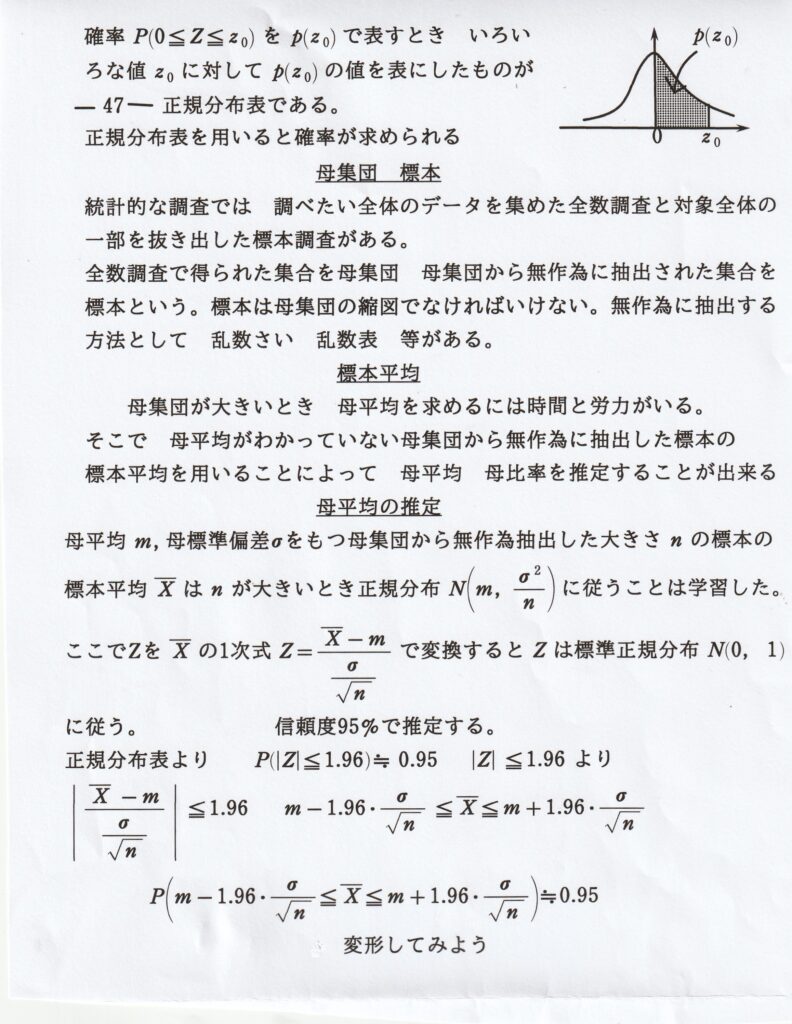 確率 P(0≦Z≦z₀) を p(z₀) で表すとき いろい
ろな値 z₀ に対して p(z₀) の値を表にしたものが
― 47 ― 正規分布表である。
正規分布表を用いると確率が求められる
p(z₀)
0 z₀
母集団 標本
統計的な調査では 調べたい全体のデータを集めた全数調査と対象全体の
一部を抜き出した標本調査がある。
全数調査で得られた集合を母集団 母集団から無作為に抽出された集合を
標本という。標本は母集団の縮図でなければいけない。無作為に抽出する
方法として 乱数さい 乱数表 等がある。
標本平均
母集団が大きいとき 母平均を求めるには時間と労力がいる。
そこで 母平均がわかっていない母集団から無作為に抽出した標本の
標本平均を用いることによって 母平均 母比率を推定することが出来る
母平均の推定
母平均 m, 母標準偏差σをもつ母集団から無作為抽出した大きさ n の標本の
標本平均 X̅ は n が大きいとき正規分布 N(m, σ²/n) に従うことは学習した。
ここでZを X̅ の1次式 Z=(X̅−m)/(σ/√n) で変換すると Z は標準正規分布 N(0, 1)
に従う。 信頼度95%で推定する。
正規分布表より P(|Z|≦1.96)≒0.95 |Z|≦1.96 より
|(X̅−m)/(σ/√n)|≦1.96 m−1.96·σ/√n ≦X̅≦m+1.96·σ/√n
P(m−1.96·σ/√n≦X̅≦m+1.96·σ/√n)≒0.95
変形してみよう